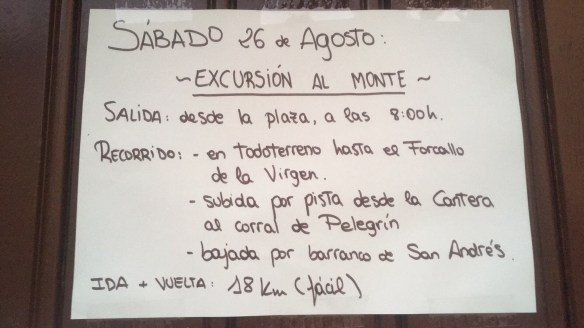 SÁBADO 26 de Agosto:
~ EXCURSIÓN AL MONTE ~
SALIDA: desde la plaza, a las 8:00h.
RECORRIDO: - en todoterreno hasta el Forcallo
de la Virgen.
- subida por pista desde la Cantera
al corral de Pelegrín
- bajada por barranco de San Andrés.
IDA + VUELTA: 18 Km (fácil)